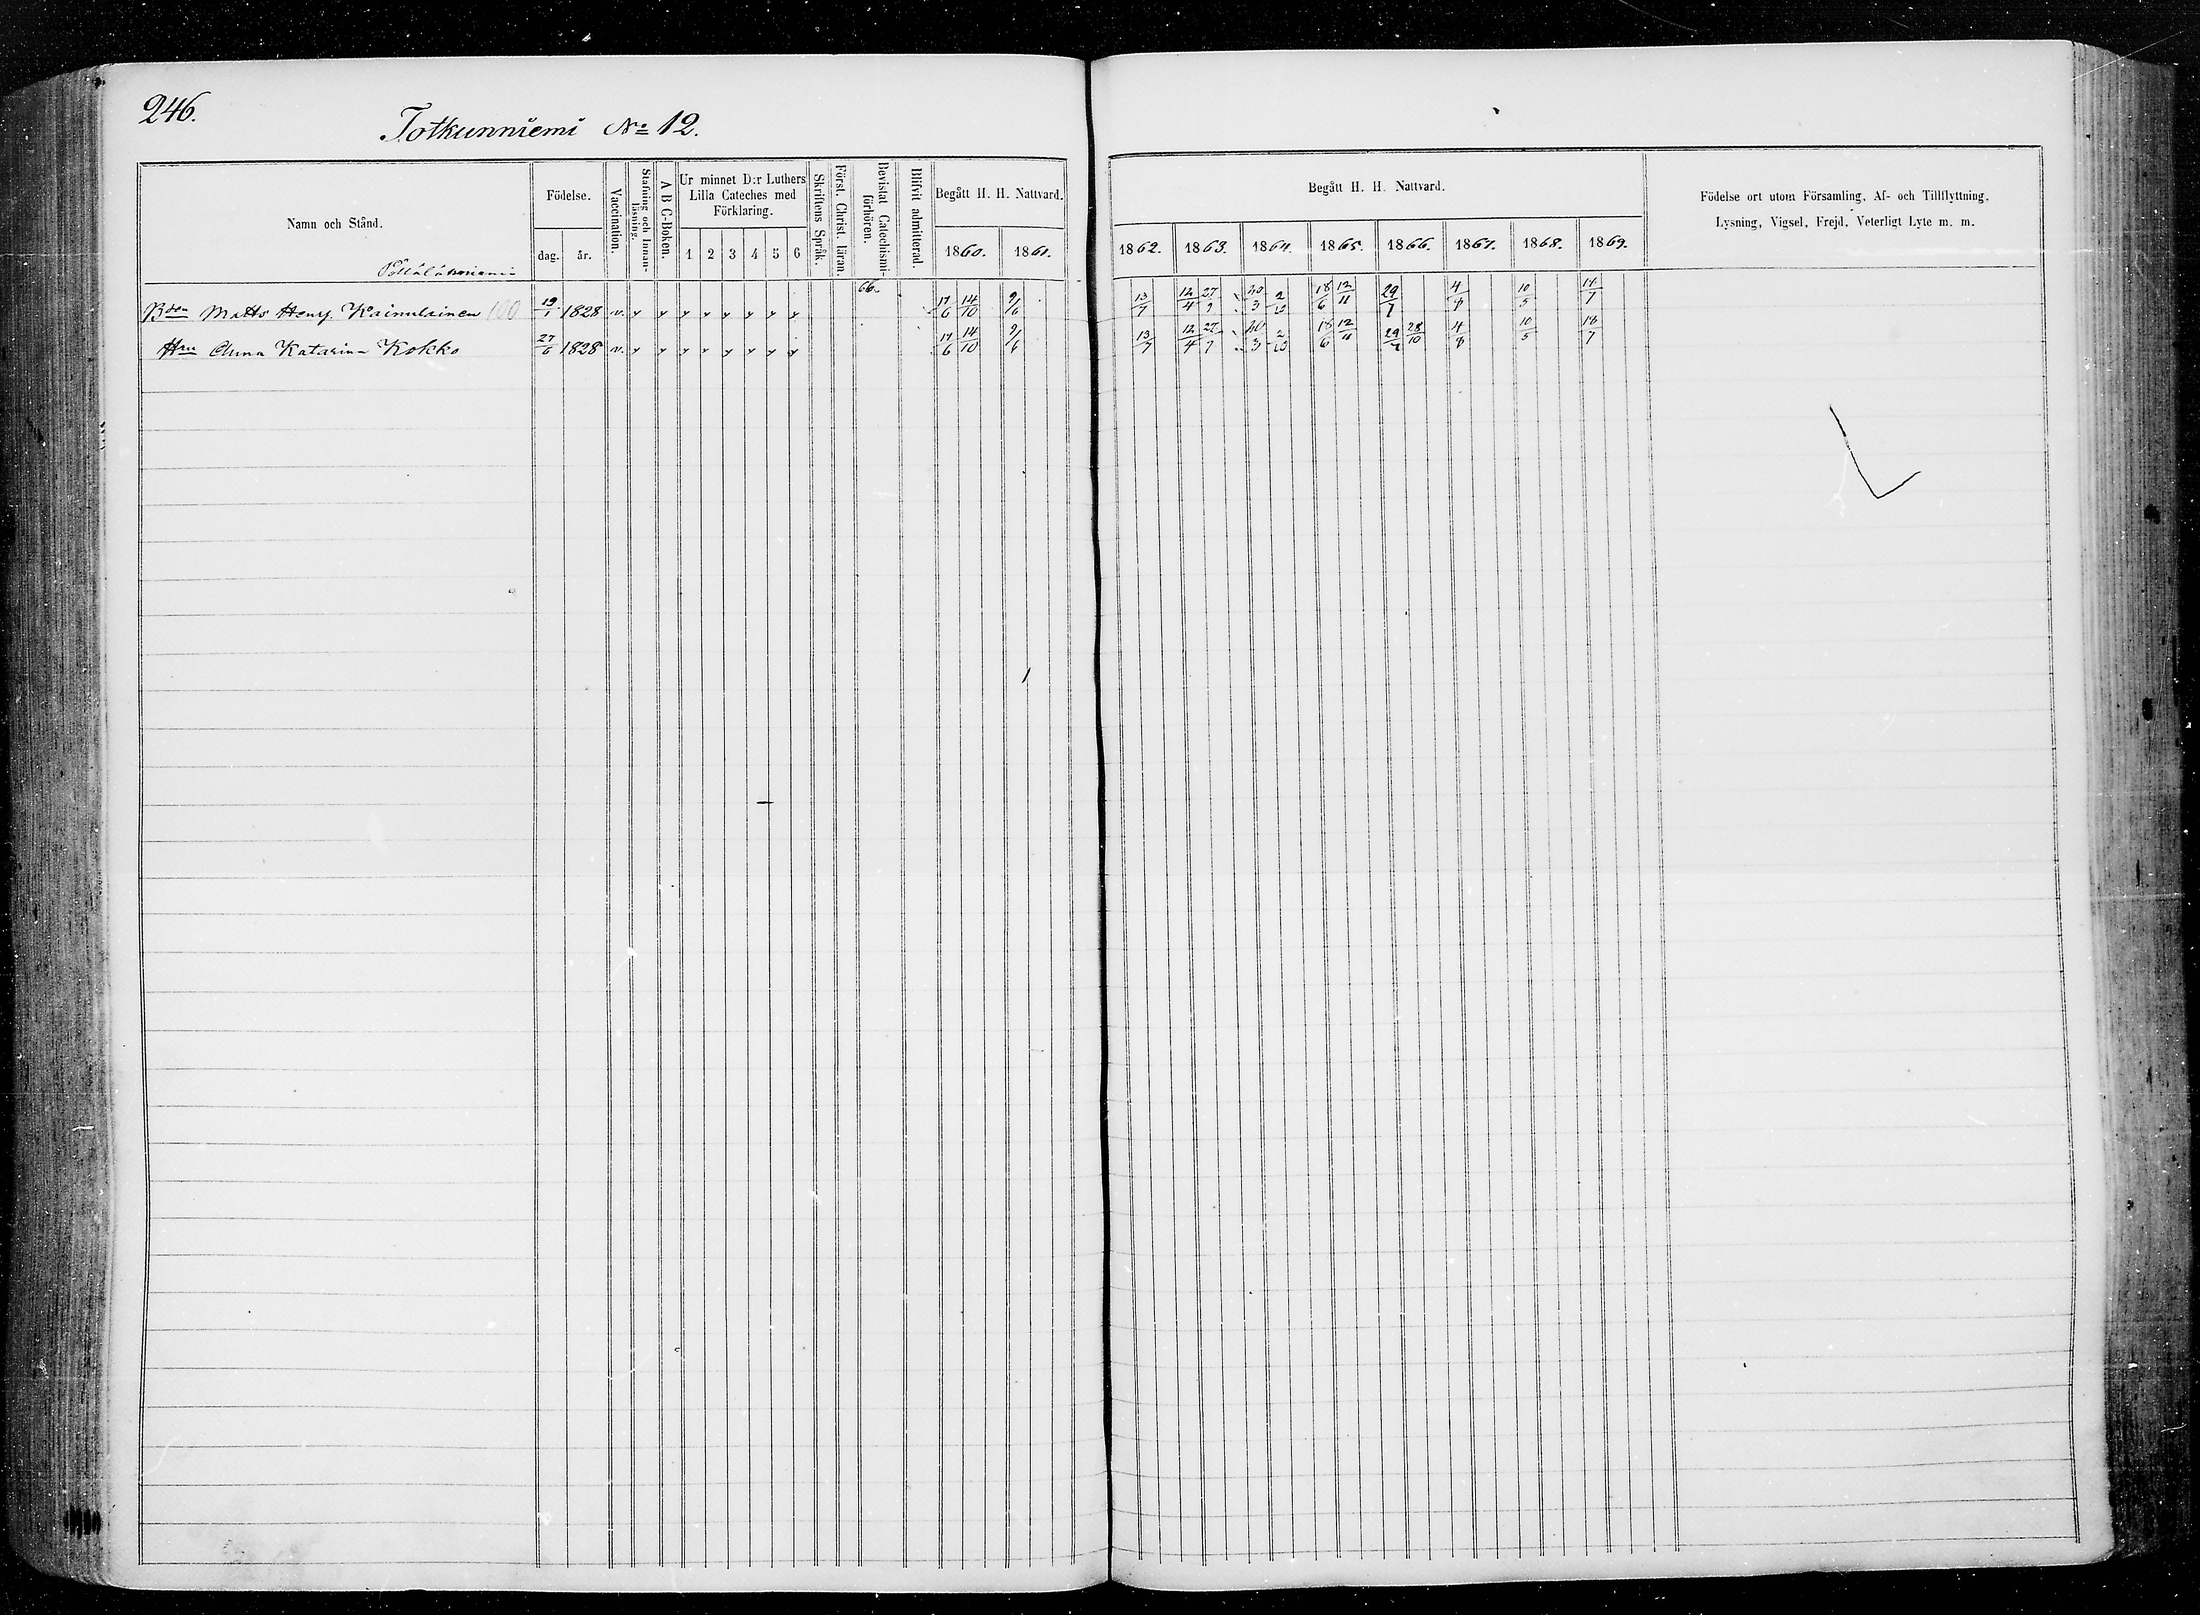 246.
Totkunniemi No 12.
Namn och Stånd.
Födelse.
dag. år.
Vaccination.
Stafning och Innanläsning.
A B C-Boken.
Ur minnet D:r Luthers Lilla Cateches med Förklaring.
1 2 3 4 5 6
Skriftens Språk.
Först. Christ. läran.
Bevistat Catechismiförhören.
Blifvit admitterad.
Begått H. H. Nattvard.
1860. 1861.
Begått H. H. Nattvard.
1862. 1863. 1864. 1865. 1866. 1867. 1868. 1869.
Födelse ort utom Församling, Af- och Tillflyttning,
Lysning, Vigsel, Frejd, Veterligt Lyte m. m.
66.
Bden Matts Henr. Kainulainen 100 19/1 1828 v. y y y y y y y y 17/6 14/10 9/6 13/7 12/4 27/9 20/3 2/10 18/6 12/11 29/7 4/8 10/5 14/7
Hru Anna Katarina Kokko 27/6 1828 v. y y y y y y y y 17/6 14/10 9/6 13/7 12/4 27/9 20/3 2/10 18/6 12/11 29/7 28/10 4/8 10/5 18/7